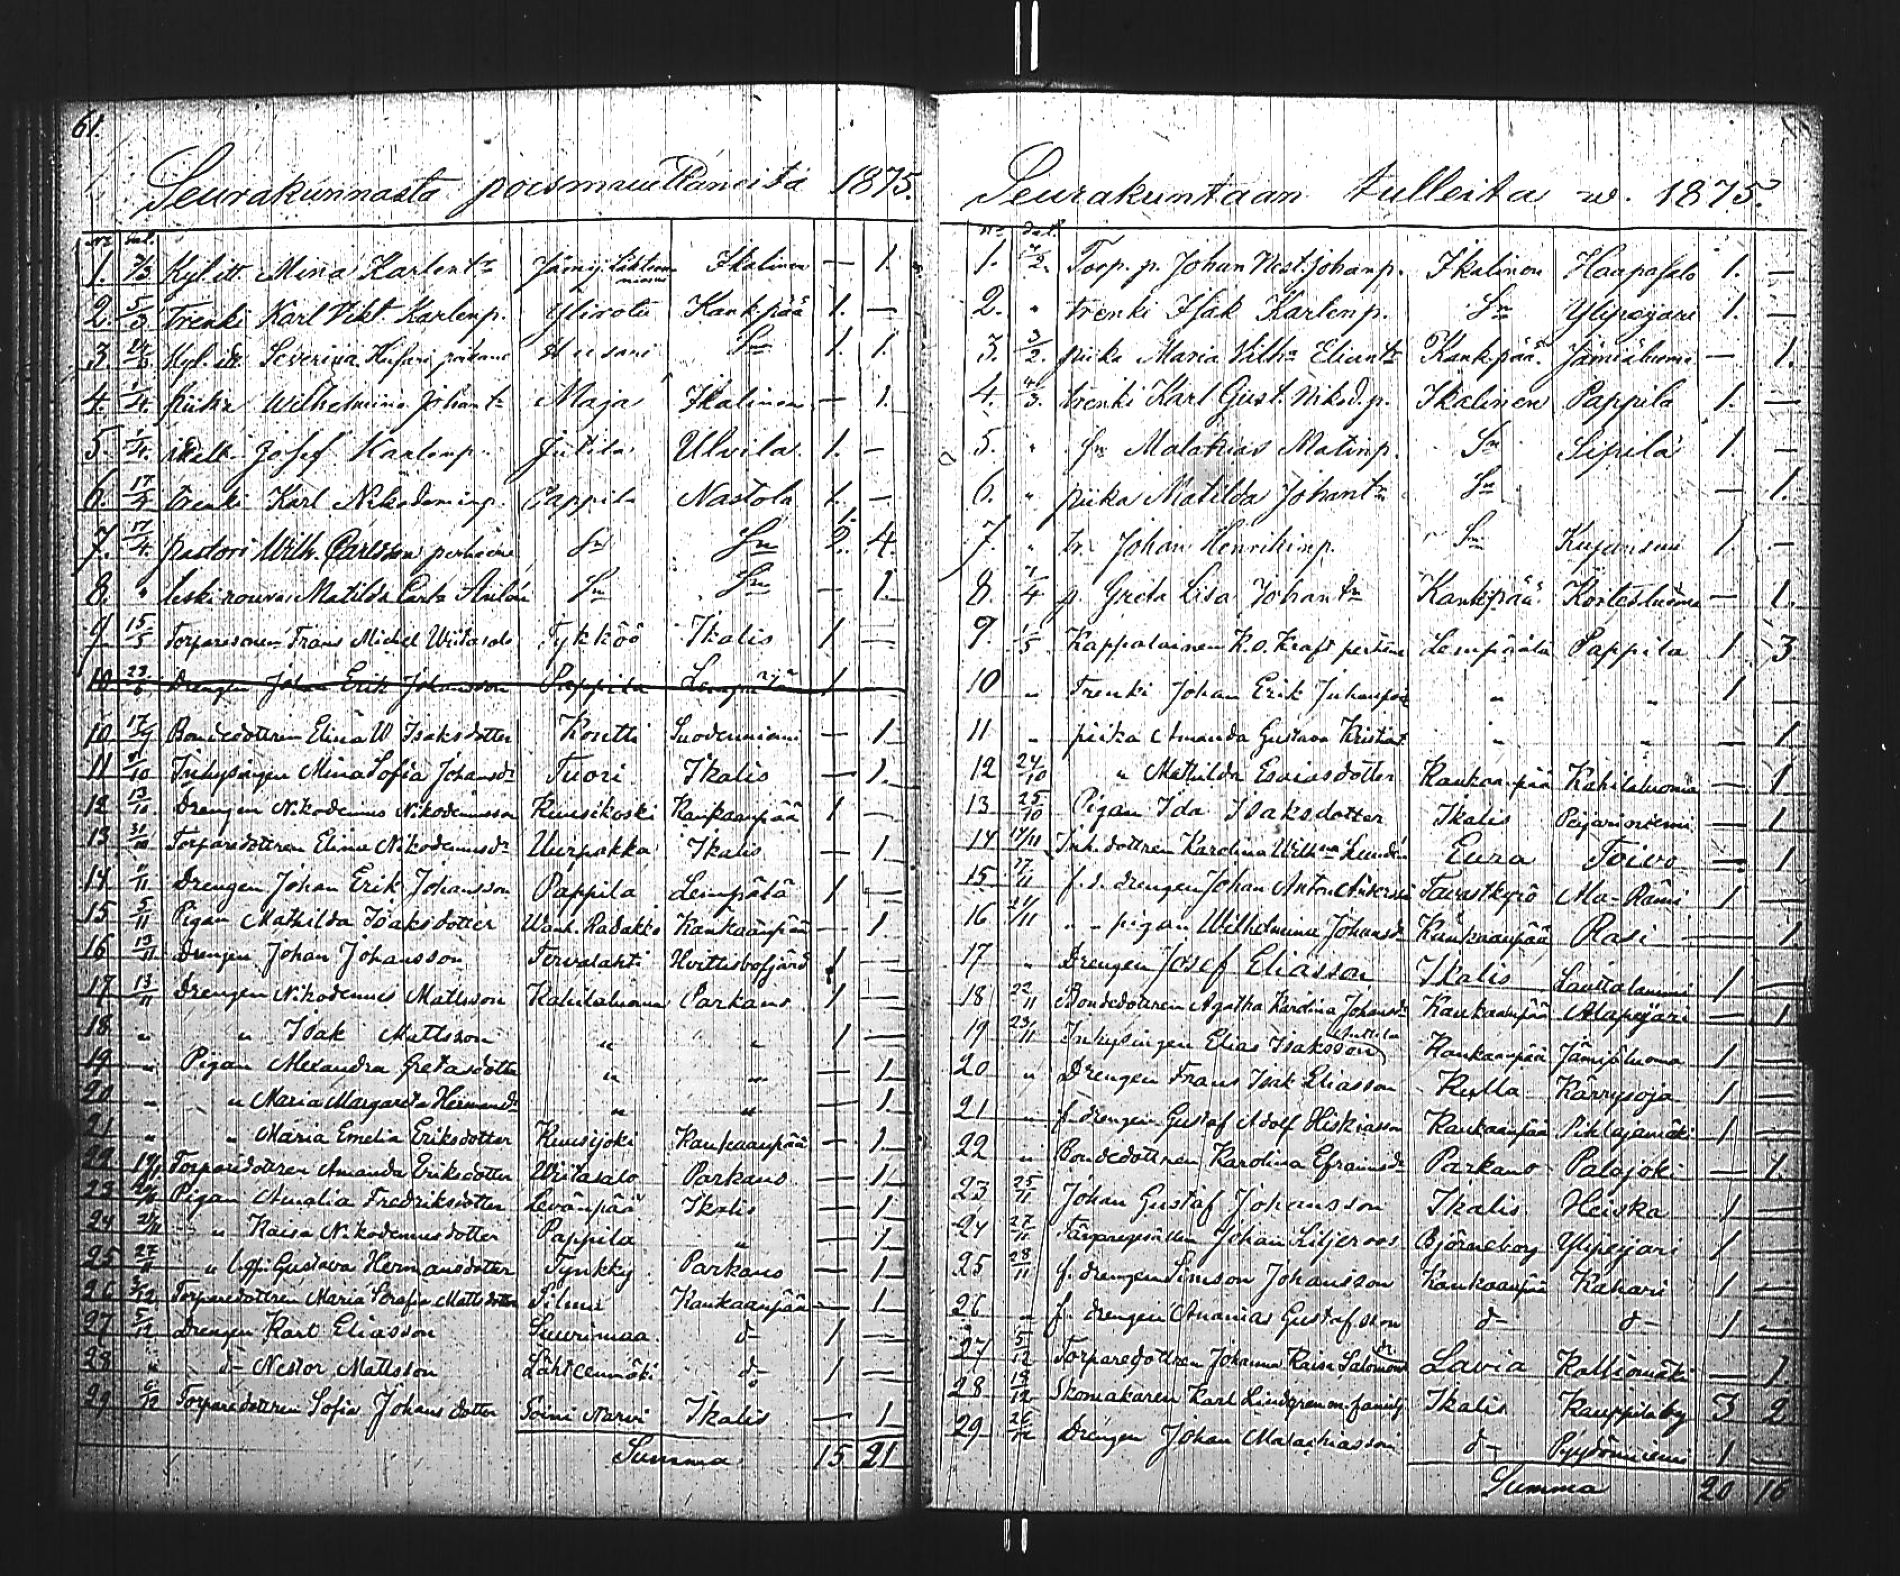 61.
Seurakunnasta poismuuttaneita 1875.
No dat.
1. Kyl. itt Mina Karlent: Jämij. Ikalinen — 1.
2. 5/3 trenki Karl Vikt. Karlenp. Yliviotu Kankpää 1. —
3. Kyl. itt. Severina 1. 1.
4. piika Wilhelmina Johant: Maja Ikalinen — 1.
5. Josef Karlenp. Jutila Ulvila 1. —
6. 17/4 trenki Karl Nikodeminp. Pappila Nastola 1. —
7. 17/4 pastori Wilh. Carlsson perheine Sn Sn 2. 4.
8. " leski rouva Matilda Sn Sn — 1.
9 15/5 Torparesonen Frans Michel Wiitasalo Tykköö Ikalis 1 —
10 23/6 Drengen Johan Erik Johansson Pappila Lempäälä 1
10 17/9 Bondedottren Elina W Isaksdotter Kontti Suodenniemi — 1
11 Inhysingen Mina Sofia Johansdr Tuori Ikalis — 1.
12 13/11 Drengen Nikodemus Nikodemusson Kuusikoski Kankaanpää 1 —
13 31/10 Torparedottren Elina Nikodemusdr Uurpakka Ikalis — 1
14 11/11 Drengen Johan Erik Johansson Pappila Lempälä 1 —
15 5/11 Pigan Mathilda Isaksdotter Wanh. Radakko Kankaanpää — 1.
16 13/11 Drengen Johan Johansson Tervalahti Hvittisbofjärd 1 —
17 13/11 Drengen Nikodemus Mattsson Kahilaluoma Parkano 1 —
18 " " Isak Mattsson " " 1 —
19 " Pigan Alexandra Gretasdotter " " — 1
20 " " Maria Margareta Hermansdr " " — 1.
21 " " Maria Emelia Eriksdotter Kuusijoki Kankaanpää — 1
22 Torparedottren Amanda Eriksdotter Wiitasalo Parkano — 1
23 Pigan Amalia Fredriksdotter Levänpää Ikalis — 1
24 " Kaisa Nikodemusdotter Pappila " — 1
25 27/11 " Gustava Hermansdotter Tynkky Parkano — 1
26 Torparedottren Maria Serafia Mattsdotter Silmu Kankaanpää — 1
27 5/12 Drengen Karl Eliasson Suurimaa d— 1 —
28 " d— Nestor Mattsson Lähteenmäki d— 1 —
29 Torparedottren Sofia Johansdotter Soini Narvi Ikalis — 1
Summa 15 21
Seurakuntaan tulleita w. 1875.
No dat.
1. Torp. p. Johan Nest. Johanp. Ikalinen Haapasalo 1. —
2. " trenki Isak Karlenp. Sn Ylipejari 1. —
3. 3/2. piika Maria Vilh: Eliant: Kankpää Jämiäluoma — 1.
4. trenki Karl Gust. Nikod. p. Ikalinen Pappila 1. —
5. " Sn Malakias Matinp. Sn Sipilä 1. —
6. " piika Matilda Johant: Sn — 1.
7. " tr. Johan Henrikinp. Sn Kujansuu 1. —
8. p. Greta Lisa Johant: Kankpää Kortesluoma — 1.
9. 1/5 Kappalainen K. O. Kraft perheine Lempäälä Pappila 1. 3.
10 " Trenki Johan Erik Juhanpoi " " 1 —
11 " piika Amanda Gustava Kristiant " " — 1
12 24/10 " Mathilda Esaiasdotter Kankaanpää Kahilaluoma — 1
13 25/10 Pigan Ida Isaksdotter Ikalis Pejariniemi — 1
14 17/11 Inh. dottren Karolina Wilh:a Lundén Eura Toivo — 1
15 17/11 f. d. drengen Johan Anton Andersson Tavastkyrö Ala-Rämi 1 —
16 21/11 " " pigan Wilhelmina Johansdr Kankaanpää Rasi — 1
17 " Drengen Josef Eliasson Ikalis Lauttalammi 1 —
18 22/11 Bondedottren Agatha Karolina Johansdr Kankaanpää Alapejari — 1
19 23/11 Inhysingen Elias Isaksson Kankaanpää Jämiäluoma 1 —
20 " Drengen Frans Isak Eliasson Kulla Kärrysoja 1 —
21 " f. drengen Gustaf Adolf Hiskiasson Kankaanpää Pihlajamäki 1 —
22 " Bondedottren Karolina Efraimsdr Parkano Palojoki — 1.
23 25/11 Johan Gustaf Johansson Ikalis Heiska 1 —
24 27/11 Färgaregesällen Johan Liljeroos Björneborg Ylipejari 1 —
25 28/11 f. drengen Simson Johansson Kankaanpää Kahari 1 —
26 " f. drengen Ananias Gustafsson d— d— 1 —
27 5/12 Torparedottren Johanna Kaisa Salomonsdr Lavia Kalliomäki — 1
28 Skomakaren Karl Lindgren m. familj Ikalis Kauppila by 3 2
29 Drengen Johan Malachiasson d— Pyydönniemi 1 —
Summa 20 16